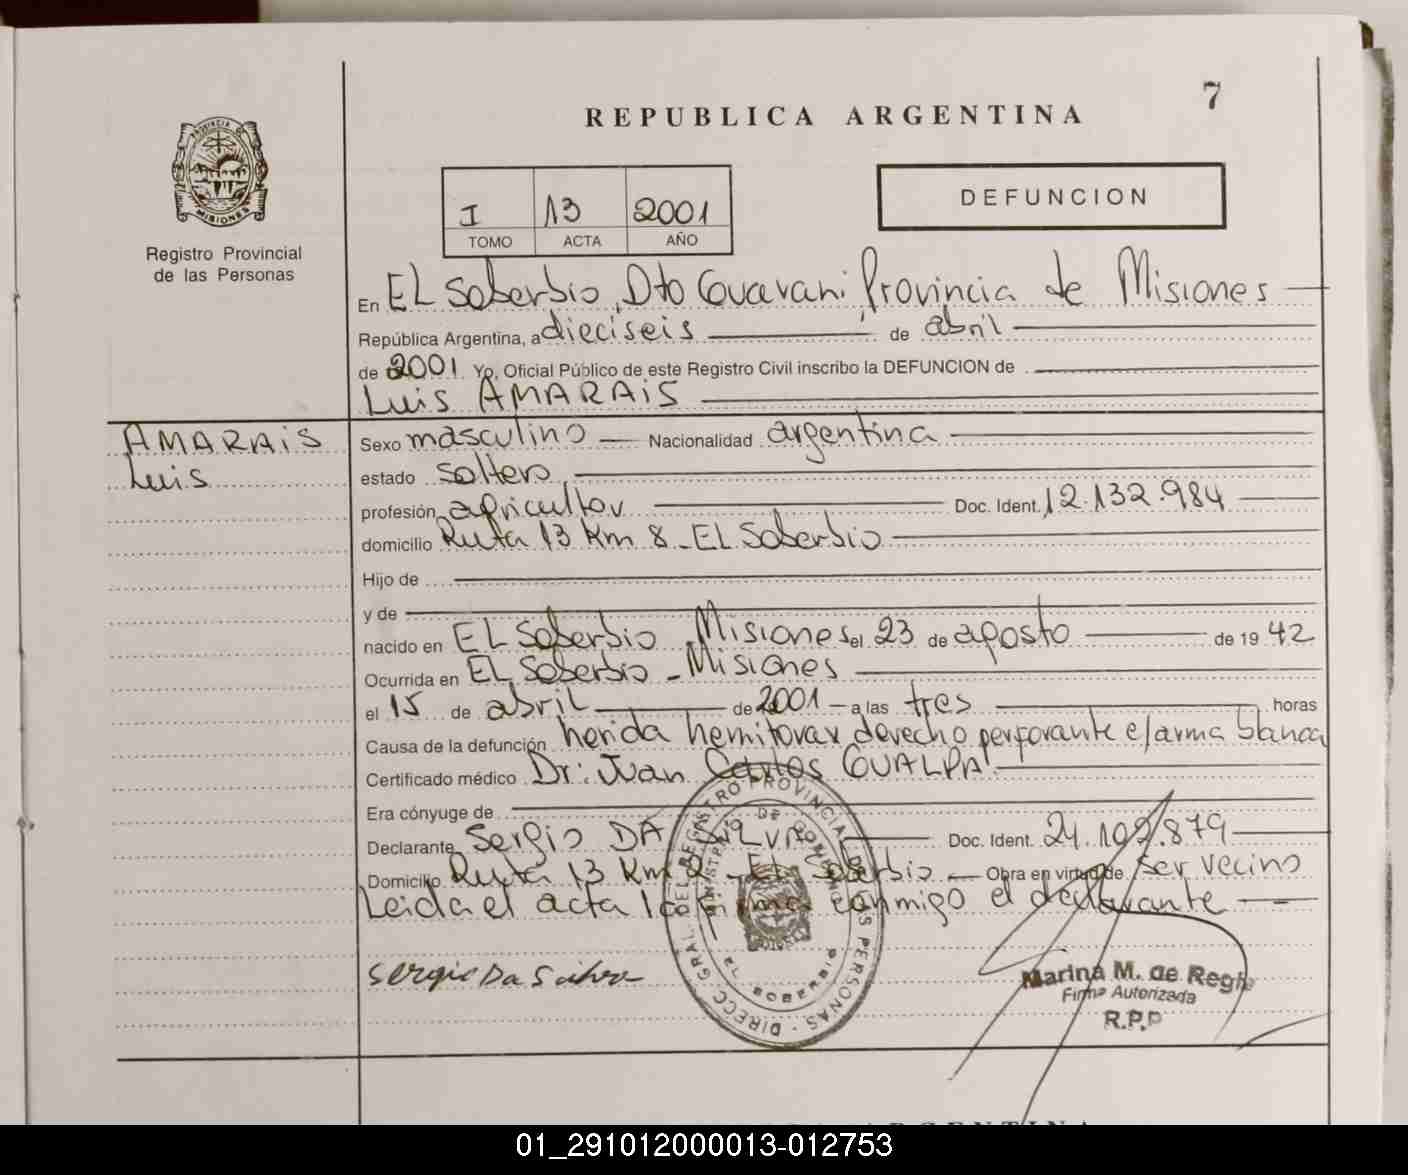 7
REPUBLICA ARGENTINA
PROVINCIA DE
MISIONES
Registro Provincial
de las Personas
I 13 2001
TOMO ACTA AÑO
DEFUNCION
En EL Soberbio, Dto Guarani Provincia de Misiones
República Argentina, a dieciseis de abril
de 2001 Yo, Oficial Público de este Registro Civil inscribo la DEFUNCION de
Luis AMARAIS
AMARAIS
Luis
Sexo masculino Nacionalidad argentina
estado soltero
profesión agricultor Doc. Ident. 12.132.984
domicilio Ruta 13 Km 8 - EL Soberbio
Hijo de
y de
nacido en EL Soberbio - Misiones el 23 de agosto de 19 42
Ocurrida en EL Soberbio - Misiones
el 15 de abril de 2001 a las tres horas
Causa de la defunción herida hemitorax derecho perforante c/arma blanca
Certificado médico Dr: Juan Carlos GUALPA
Era cónyuge de
Declarante Sergio DA SILVA Doc. Ident. 24.102.879
Domicilio Ruta 13 Km 2 - EL Soberbio Obra en virtud de ser vecino
Leida el acta la firma conmigo el declarante
Sergio Da Silva
DIRECC. GRAL. DEL REGISTRO PROVINCIAL DE LAS PERSONAS
EL SOBERBIO
Marina M. de Regis
Firma Autorizada
R.P.P
01_291012000013-012753